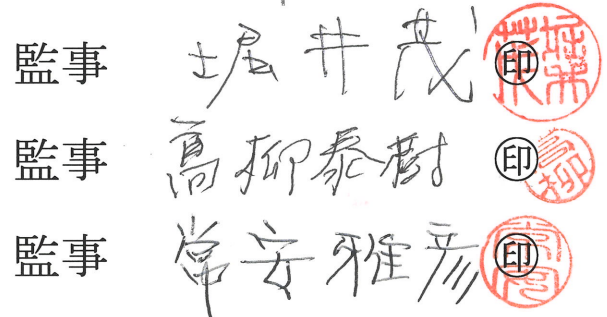 監事 堀井茂 ㊞
監事 高柳泰樹 ㊞
監事 常安雅彦 ㊞